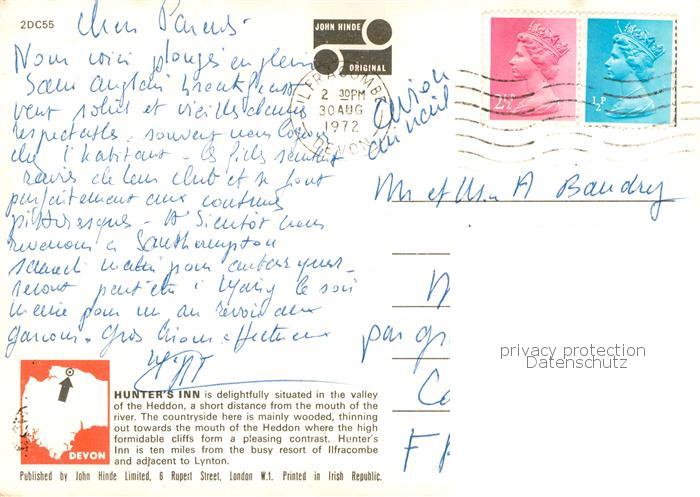 2DC55
Chers Parents
JOHN HINDE
ORIGINAL
Nous voici plongés en plein
vent soleil et vieilles dames
respectables. souvent nous
chez l'habitant. les filles semblent
ravies de leur club et se font
parfaitement aux coutumes
pittoresques - A bientôt nous
revenons à Southampton
samedi matin pour embarquer
le soir
même pour un au revoir aux
garçons. Gros bisous affectueux
ILFRACOMBE
2 30PM
30 AUG
1972
DEVON
2½P
½P
avion
Mr et Mme A Baudry
par
F
privacy protection
Datenschutz
DEVON
HUNTER'S INN is delightfully situated in the valley
of the Heddon, a short distance from the mouth of the
river. The countryside here is mainly wooded, thinning
out towards the mouth of the Heddon where the high
formidable cliffs form a pleasing contrast. Hunter's
Inn is ten miles from the busy resort of Ilfracombe
and adjacent to Lynton.
Published by John Hinde Limited, 6 Rupert Street, London W.1. Printed in Irish Republic.